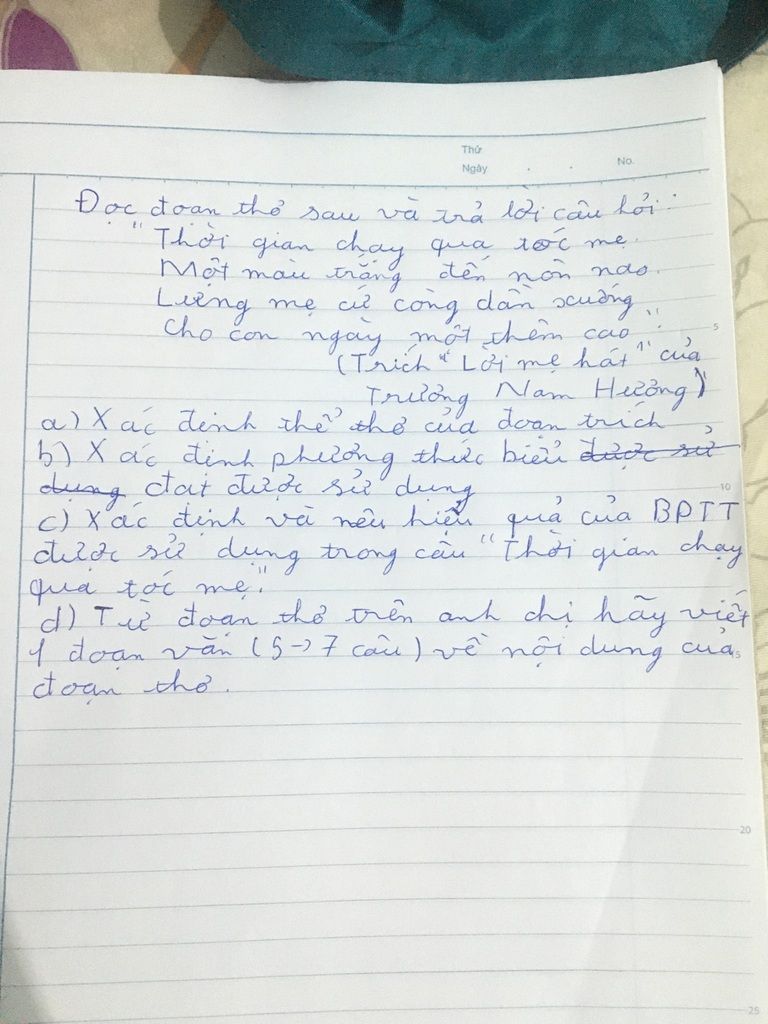 Thứ
Ngày . . No.
Đọc đoạn thơ sau và trả lời câu hỏi:
"Thời gian chạy qua tóc mẹ.
Một màu trắng đến nôn nao.
Lưng mẹ cứ còng dần xuống
Cho con ngày một thêm cao".
5
(Trích "Lời mẹ hát" của
Trương Nam Hương)
a) Xác định thể thơ của đoạn trích
b) Xác định phương thức biểu được sử
dụng đạt được sử dụng
10
c) Xác định và nêu hiệu quả của BPTT
được sử dụng trong câu "Thời gian chạy
qua tóc mẹ."
d) Từ đoạn thơ trên anh chị hãy viết
1 đoạn văn (5→7 câu) về nội dung của
đoạn thơ.
20
25